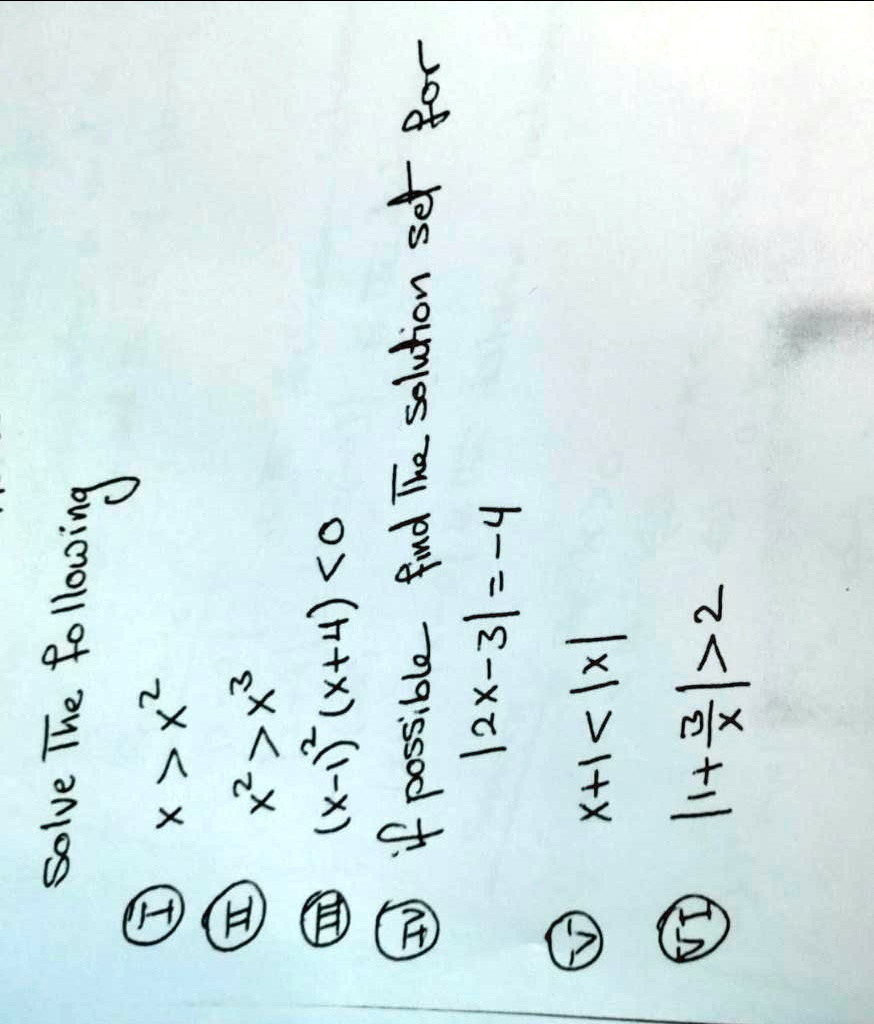 Solve The following
I x > x²
II x² > x³
III (x-1)² (x+4) < 0
IV if possible find The solution set for
|2x-3| = -4
V x+1 < |x|
VI |1 + 3/x| > 2